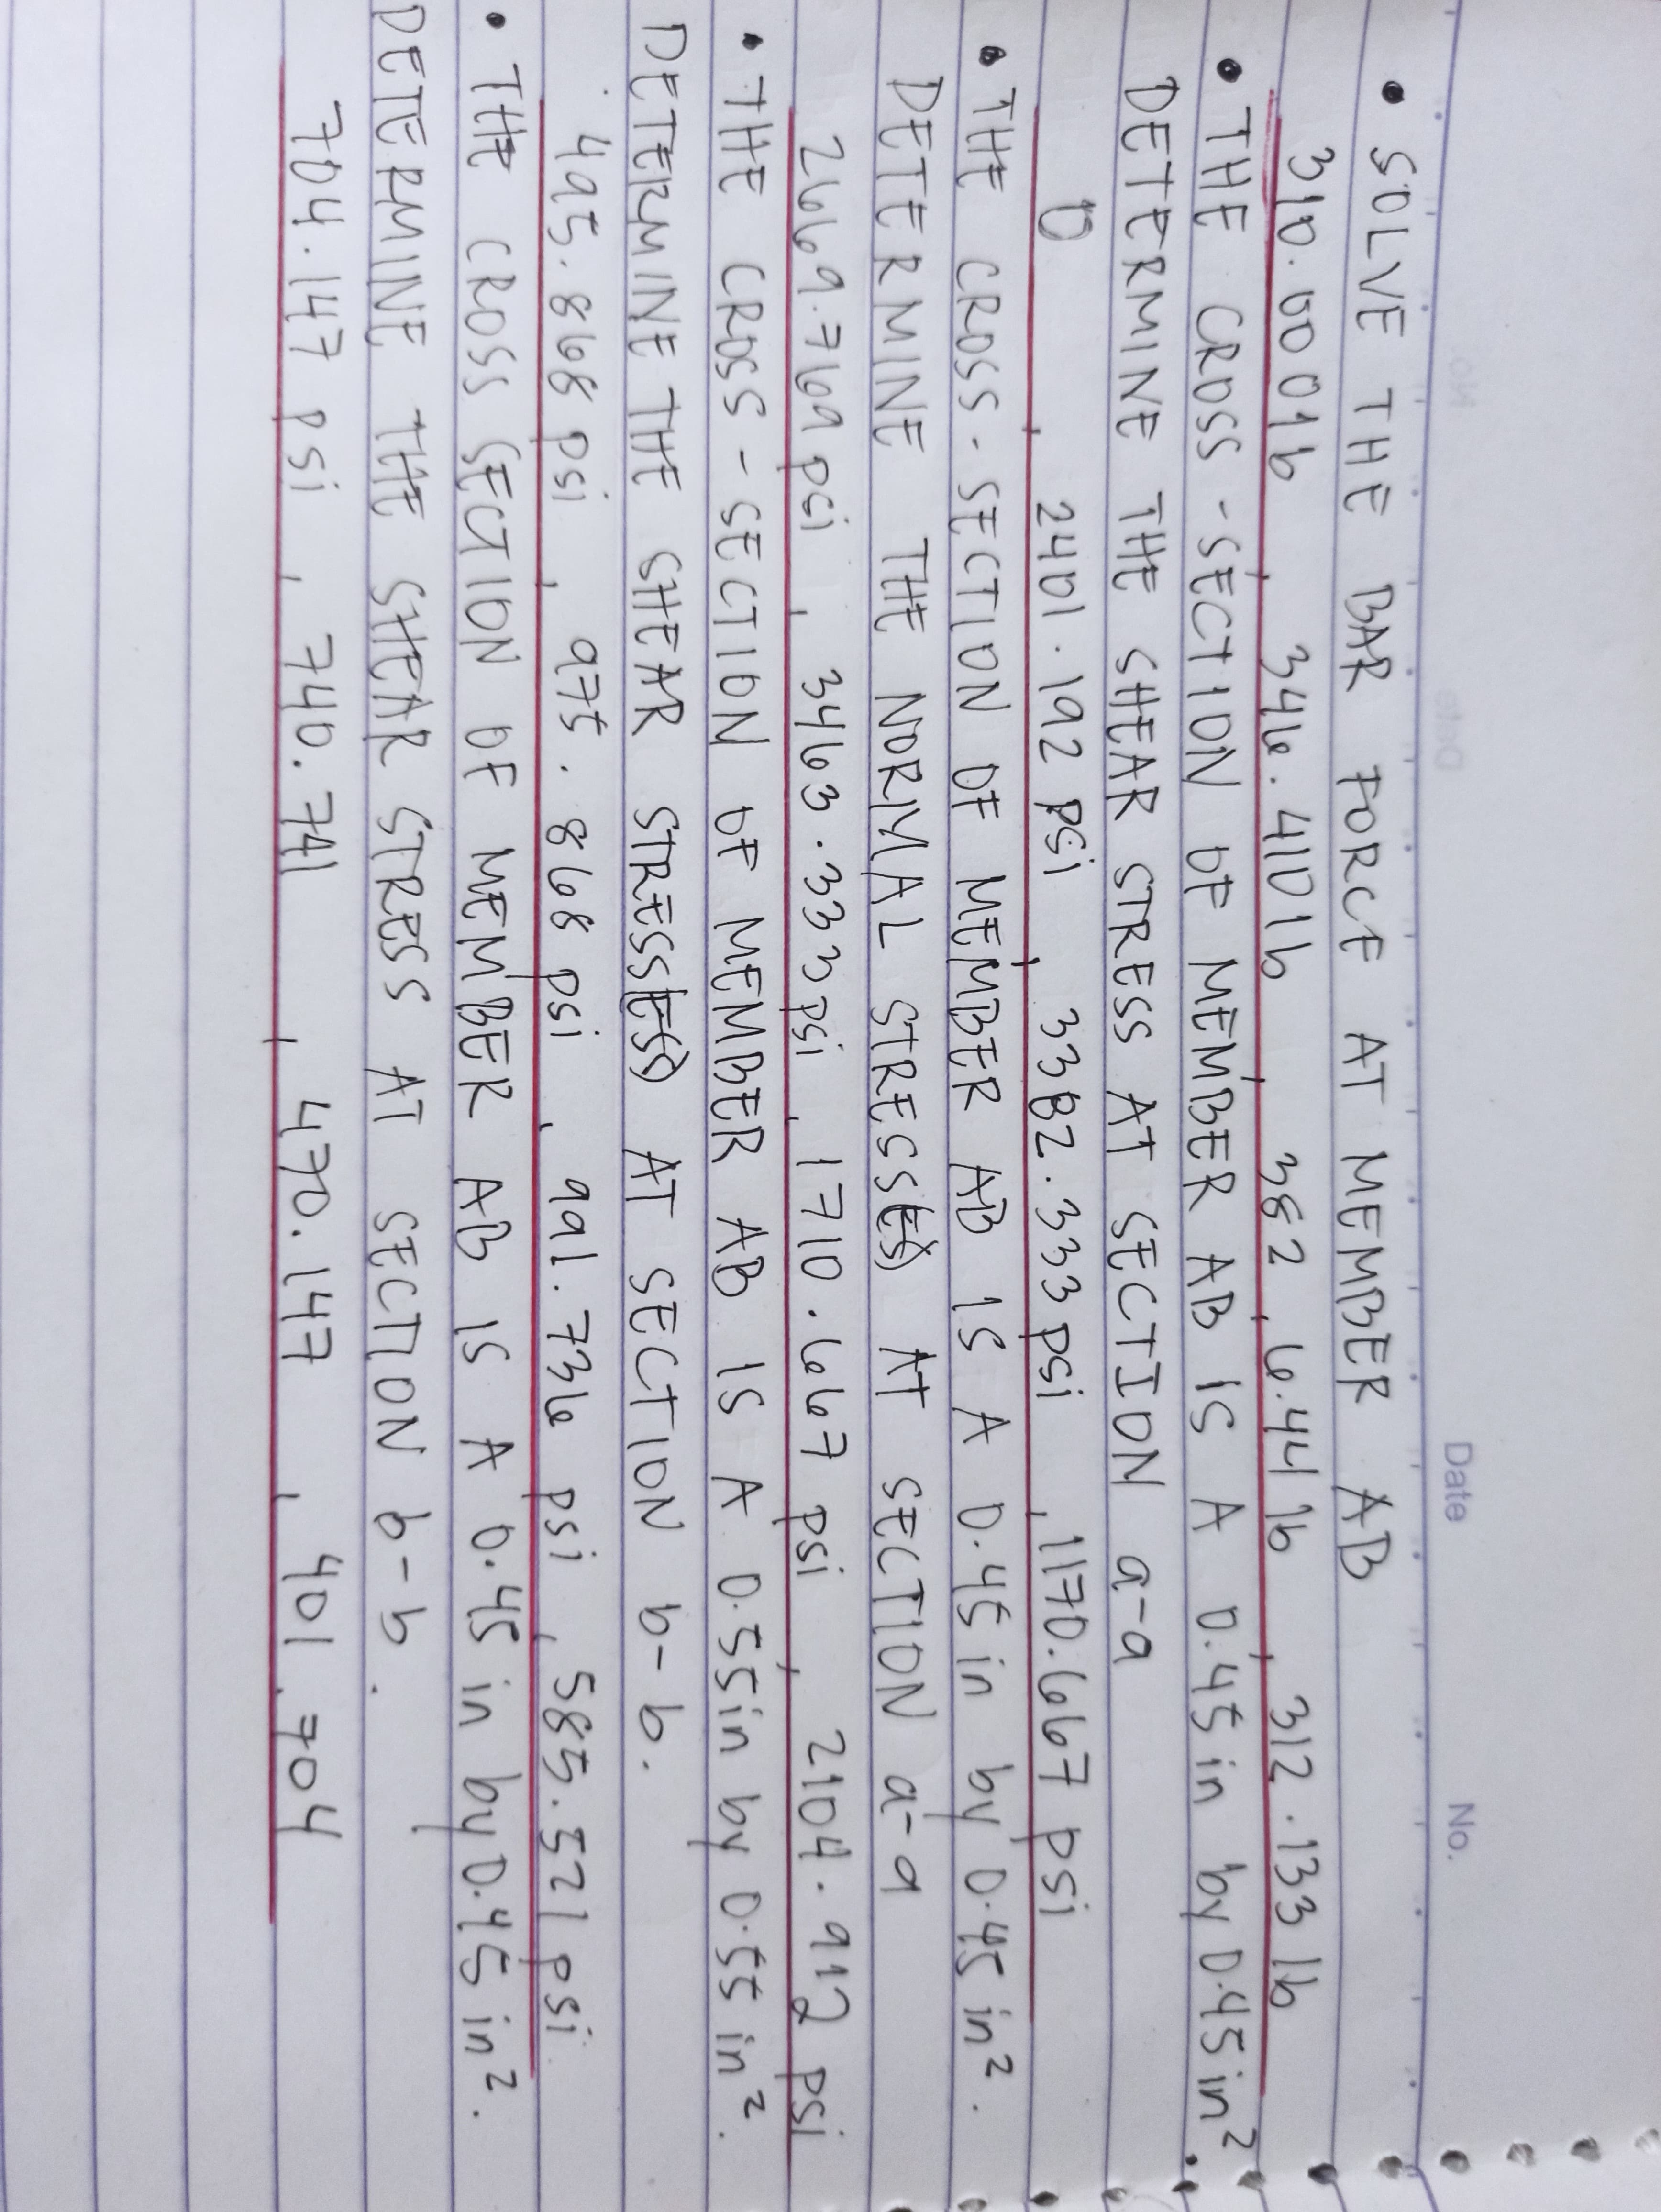 Date No.
• SOLVE THE BAR FORCE AT MEMBER AB
310.00 01b , 346.4101b , 382,6.44 1b , 312.133 1b
• THE CROSS-SECTION OF MEMBER AB IS A 0.45 in by 0.45 in².
DETERMINE THE SHEAR STRESS AT SECTION a-a
0 , 2401.192 psi , 3382.333 psi , 1170.667 psi
• THE CROSS-SECTION OF MEMBER AB IS A 0.45 in by 0.45 in².
DETERMINE THE NORMAL STRESS(ES) AT SECTION a-a
2669.769 psi , 3463.333 psi , 1710.667 psi , 2104.912 psi
• THE CROSS-SECTION OF MEMBER AB IS A 0.55in by 0.55 in².
DETERMINE THE SHEAR STRESS(ES) AT SECTION b-b.
495.868 psi , 975.868 psi , 991.736 psi , 585.521 psi
• THE CROSS SECTION OF MEMBER AB IS A 0.45 in by 0.45 in².
DETERMINE THE SHEAR STRESS AT SECTION b-b.
704.147 psi , 740.741 , 470.147 , 401.704